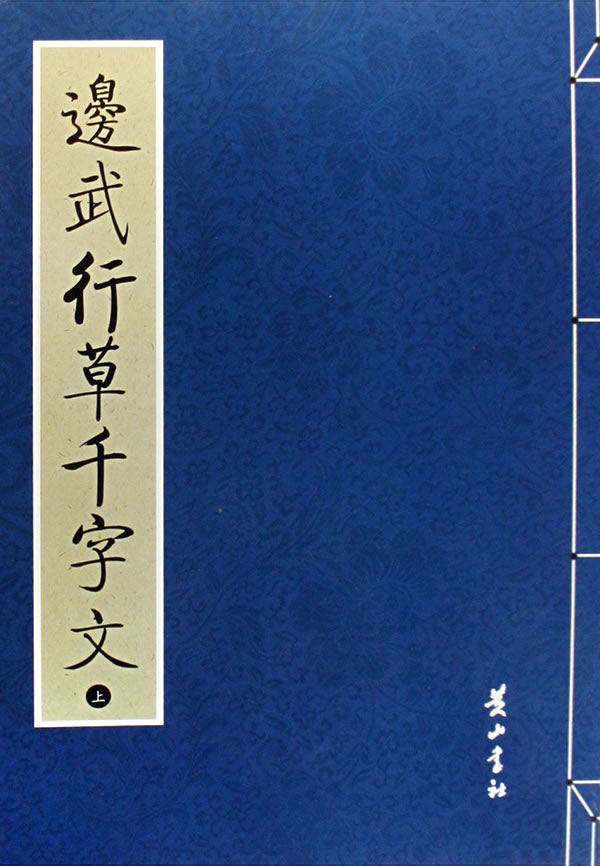 邊武行草千字文
上
黄山書社